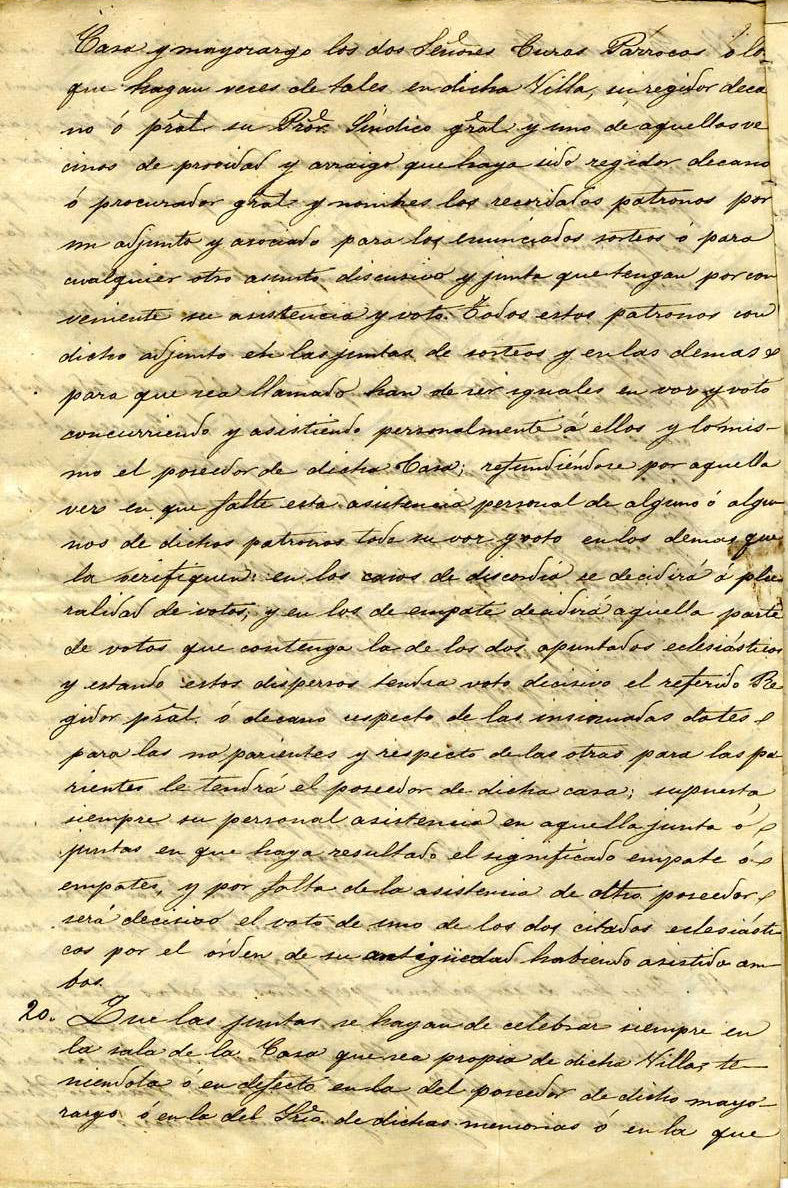 Casa y mayorazgo los dos Señores Curas Párrocos ó lo
que hagan veces de tales en dicha Villa, su regidor deca
no ó pral. su Pror. Síndico gral. y uno de aquellos ve
cinos de providad y arraigo que haya sido regidor decano
ó procurador gral. y nombres los recordados patronos por
un adjunto y asociado para los enunciados sorteos ó para
cualquier otro asunto discusivo y junta que tengan por con
veniente su asistencia y voto. Todos estos patronos con
dicho adjunto en las juntas de sorteos y en las demas
para que sea llamado han de ser iguales en voz y voto
concurriendo y asistiendo personalmente á ellos y lo mis-
mo el poseedor de dicha Casa; refundiéndose por aquella
vez en que falte esta asistencia personal de alguno ó algu
nos de dichos patronos todo su voz y voto en los demas que
la verifiquen: en los casos de discordia se decidirá á plu
ralidad de votos, y en los de empate decidirá aquella parte
de votos que contenga la de los dos apuntados eclesiásticos
y estando estos dispersos tendrá voto decisivo el referido Re
gidor pral. ó decano respecto de las insinuadas dotes
para las no parientes y respecto de las otras para las pa
rientes le tendrá el poseedor de dicha casa; supuesta
siempre su personal asistencia en aquella junta ó
juntas en que haya resultado el significado empate ó
empates, y por falta de la asistencia de dho. poseedor
será decisivo el voto de uno de los dos citados eclesiásti
cos por el órden de su antigüedad habiendo asistido am
bos.
20. Que las juntas se hayan de celebrar siempre en
la sala de la Casa que sea propia de dicha Villa, te-
niendola ó en defecto en la del poseedor de dicho mayo-
razgo ó en la del Srio. de dichas memorias ó en la que